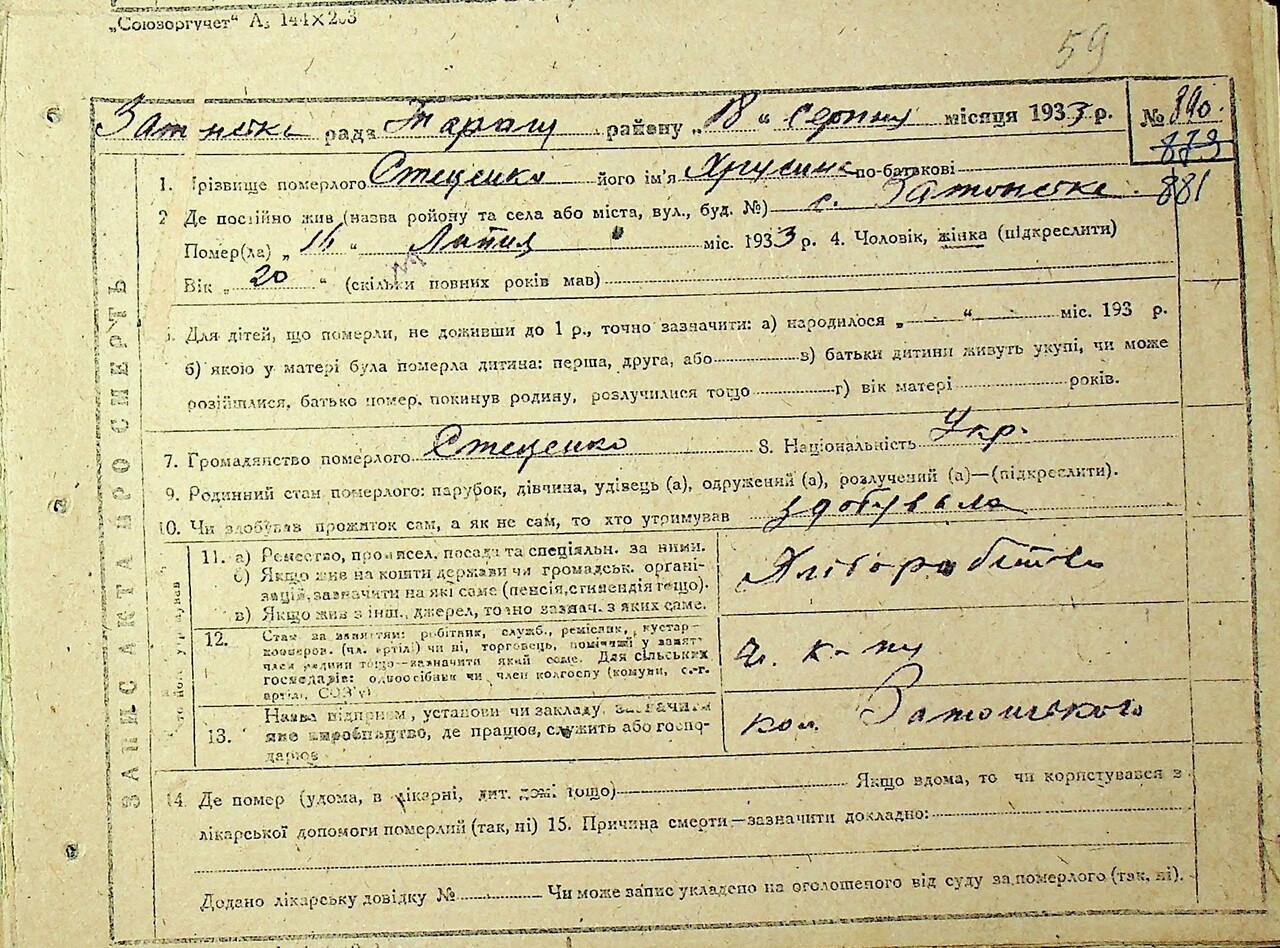 „Союзоргучет“ А₅ 144×203
59
рада району „18“ серпня місяця 1933 р. № 890
873
1. Прізвище померлого Стеценко його ім'я по-батькові
881
2 Де постійно жив (назва району та села або міста, вул., буд. №) с.
Помер(ла) „ 16 “ Липня міс. 1933 р. 4. Чоловік, жінка (підкреслити)
Вік „ 20 “ (скільки повних років мав)
Для дітей, що померли, не доживши до 1 р., точно зазначити: а) народилося „ “ міс. 193 р.
б) якою у матері була померла дитина: перша, друга, або в) батьки дитини живуть укупі, чи може
розійшлися, батько помер, покинув родину, розлучилися тощо г) вік матері років.
7. Громадянство померлого Стеценко 8. Національність Укр.
9. Родинний стан померлого: парубок, дівчина, удівець (а), одружений (а), розлучений (а)—(підкреслити).
10. Чи здобував прожиток сам, а як не сам, то хто утримував здобувала
ЗАПИС АКТА ПРО СМЕРТЬ
11. а) Ремество, промисел, посада та спеціяльн. за ними.
б) Якщо жив на кошти держави чи громадськ. органі-
зацій, зазначити на які саме (пенсія, стипендія тощо).
в) Якщо жив з інш. джерел, точно зазнач. з яких саме.
12. Стан за заняттям: робітник, служб., ремісник, кустар-
кооперов. (чл. артілі) чи ні, торговець,
член родини тощо—зазначити який саме. Для сільських
господарів: одноосібник чи член колгоспу (комуни, с.-г.
артілі, СОЗ'у)
ч. к-пу
Назва підприєм., установи чи закладу, зазначити
13. яке виробництво, де працює, служить або госпо-
дарює
кол. Затонського
14. Де помер (удома, в лікарні, дит. домі тощо) Якщо вдома, то чи користувався з
лікарської допомоги померлий (так, ні) 15. Причина смерти—зазначити докладно:
Додано лікарську довідку № Чи може запис укладено на оголошеного від суду за померлого (так, ні).